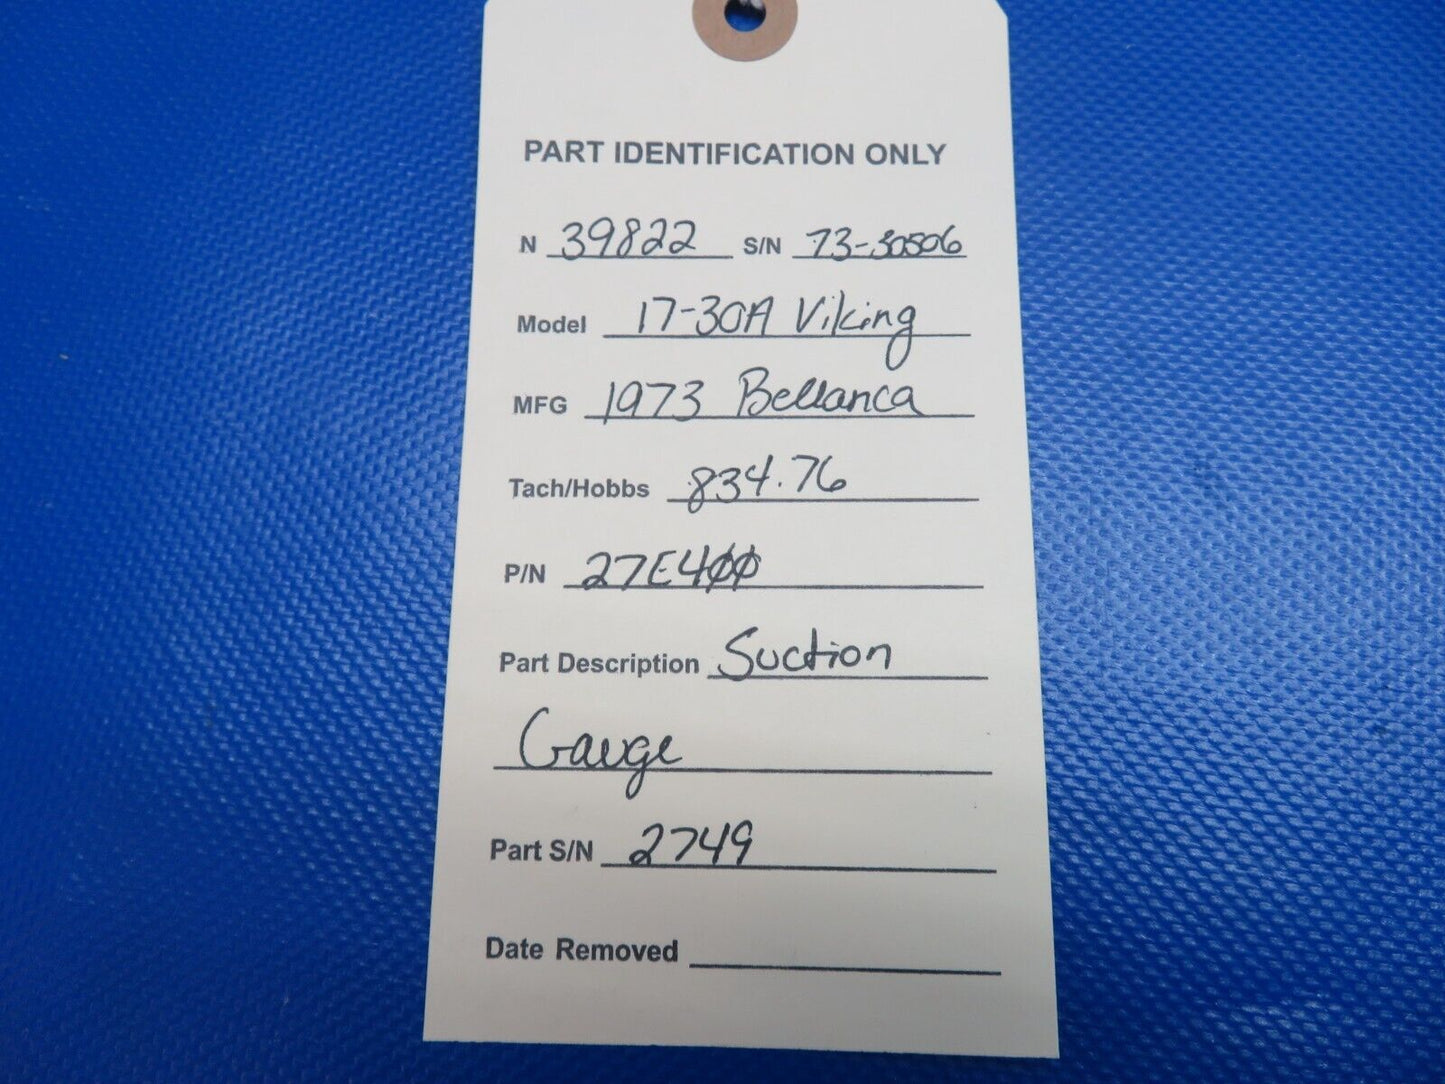 PART IDENTIFICATION ONLY
N 39822 S/N 73-30506
Model 17-30A Viking
MFG 1973 Bellanca
Tach/Hobbs 834.76
P/N 27E400
Part Description Suction
Gauge
Part S/N 2749
Date Removed